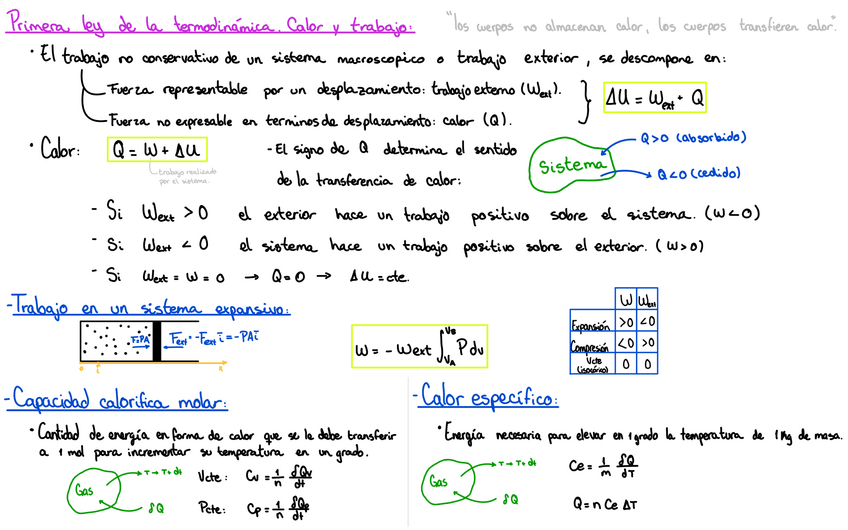 Primera ley de la termodinámica. Calor y trabajo: "los cuerpos no almacenan calor, los cuerpos transfieren calor".
· El trabajo no conservativo de un sistema macroscopico o trabajo exterior, se descompone en:
Fuerza representable por un desplazamiento: trabajo externo (Wext).
ΔU = Wext + Q
Fuerza no expresable en terminos de desplazamiento: calor (Q).
· Calor: Q = W + ΔU
trabajo realizado
por el sistema.
- El signo de Q determina el sentido
de la transferencia de calor:
Sistema
Q>0 (absorbido)
Q<0 (cedido)
- Si Wext > 0 el exterior hace un trabajo positivo sobre el sistema. (W<0)
- Si Wext < 0 el sistema hace un trabajo positivo sobre el exterior. (W>0)
- Si Wext = W = 0 → Q = 0 → ΔU = cte.
- Trabajo en un sistema expansivo:
F=PA
Fext = -Fext i = -PA i
0 i x
W = - Wext ∫ VA VB P dv
W Wext
Expansión >0 <0
Compresión <0 >0
Vcte (isocórico) 0 0
- Capacidad calorifica molar:
· Cantidad de energía en forma de calor que se le debe transferir
a 1 mol para incrementar su temperatura en un grado.
Gas
T → T + dt
δQ
Vcte: Cv = 1/n δQv/dt
Pcte: Cp = 1/n δQp/dt
- Calor específico:
· Energía necesaria para elevar en 1 grado la temperatura de 1 Kg de masa.
Gas
T → T + dt
δQ
Ce = 1/m δQ/dT
Q = n Ce ΔT